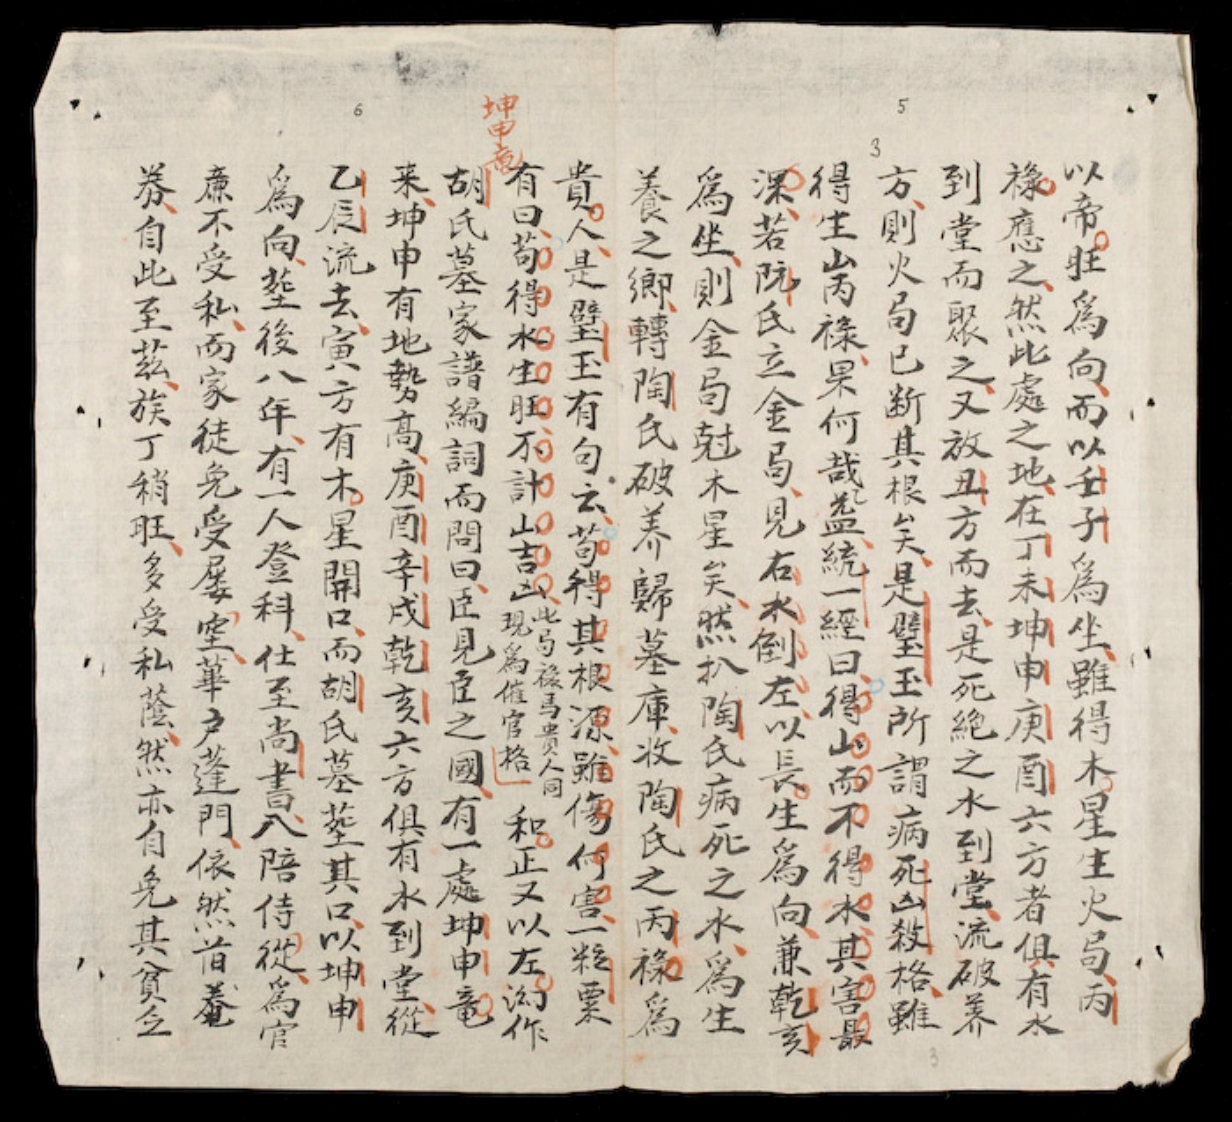 5
3
以帝旺爲向、而以壬子爲坐、雖得木星生火局、丙
祿應之、然此處之地、在丁未坤申庚酉六方者、俱有水
到堂而聚之、又放丑方而去、是死絶之水到堂、流破养
方、則火局已断其根矣、是壁玉所謂病死凶殺格、雖
得生山丙祿、果何哉、盖統一經曰、得山而不得水、其害最
深、若阮氏立金局、見右水倒左、以長生爲向、兼乾亥
爲坐、則金局尅木星矣、然扒陶氏病死之水、爲生
養之鄉、轉陶氏破养歸墓庫、收陶氏之丙祿爲
貴人、是壁玉有句云、苟得其根源、雖傷何害、一粒粟
6
坤申竜
有曰、苟得水生旺、不計山吉凶、此局祿馬貴人同現爲催官格 和正又以左泑作
胡氏墓家譜編詞而問曰、臣見臣之國、有一處坤申竜
来、坤申有地勢高、庚酉辛戌乾亥六方俱有水到堂、從
乙辰流去、寅方有木星開口、而胡氏墓塟其口、以坤申
爲向、塟後八年、有一人登科、仕至尚書、入陪侍從、爲官
廉不受私、而家徒免受屡空、華户蓬門、依然昔菴
券、自此至茲、族丁稍旺、多受私蔭、然亦自免其貧乏
3